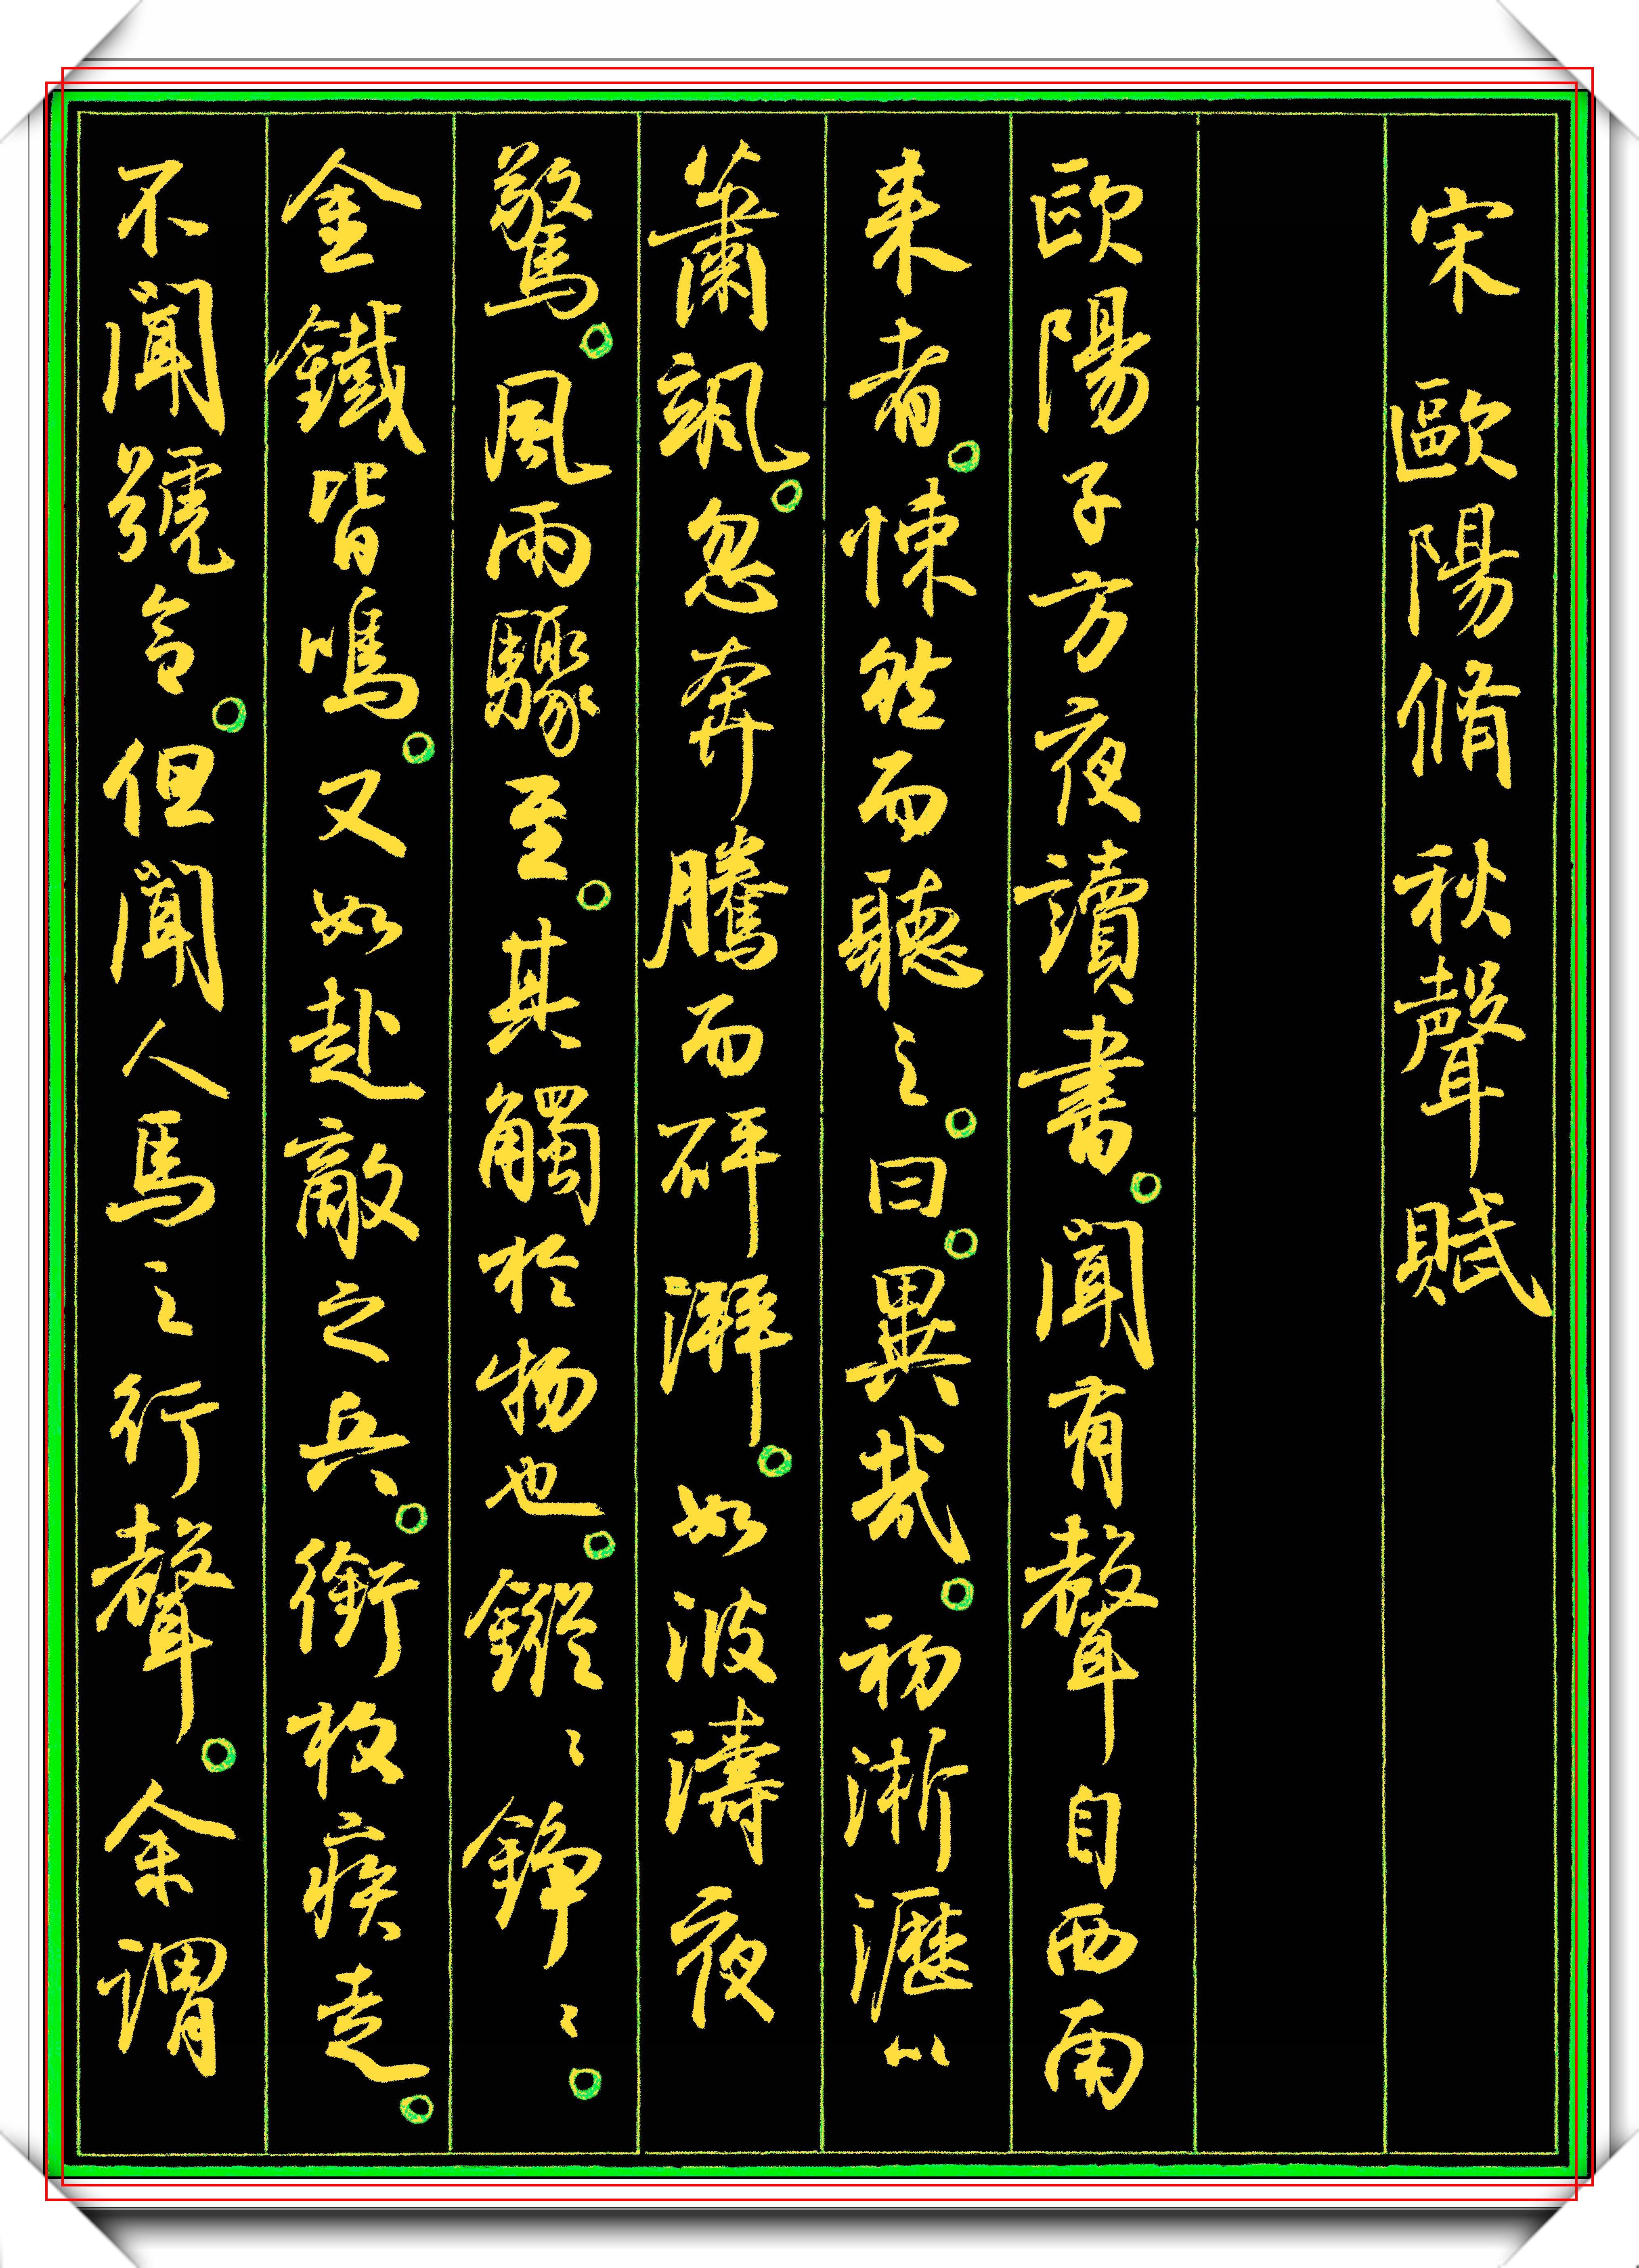 宋 歐陽脩 秋聲賦
歐陽子方夜讀書。聞有聲自西南
来者。悚然而聽之。曰。異哉。初淅瀝以
蕭颯。忽奔騰而砰湃。如波濤夜
驚。風雨驟至。其觸於物也。鏦〻錚〻。
金鐵皆鳴。又如赴敵之兵。銜枚疾走。
不聞號令。但聞人馬之行聲。余謂